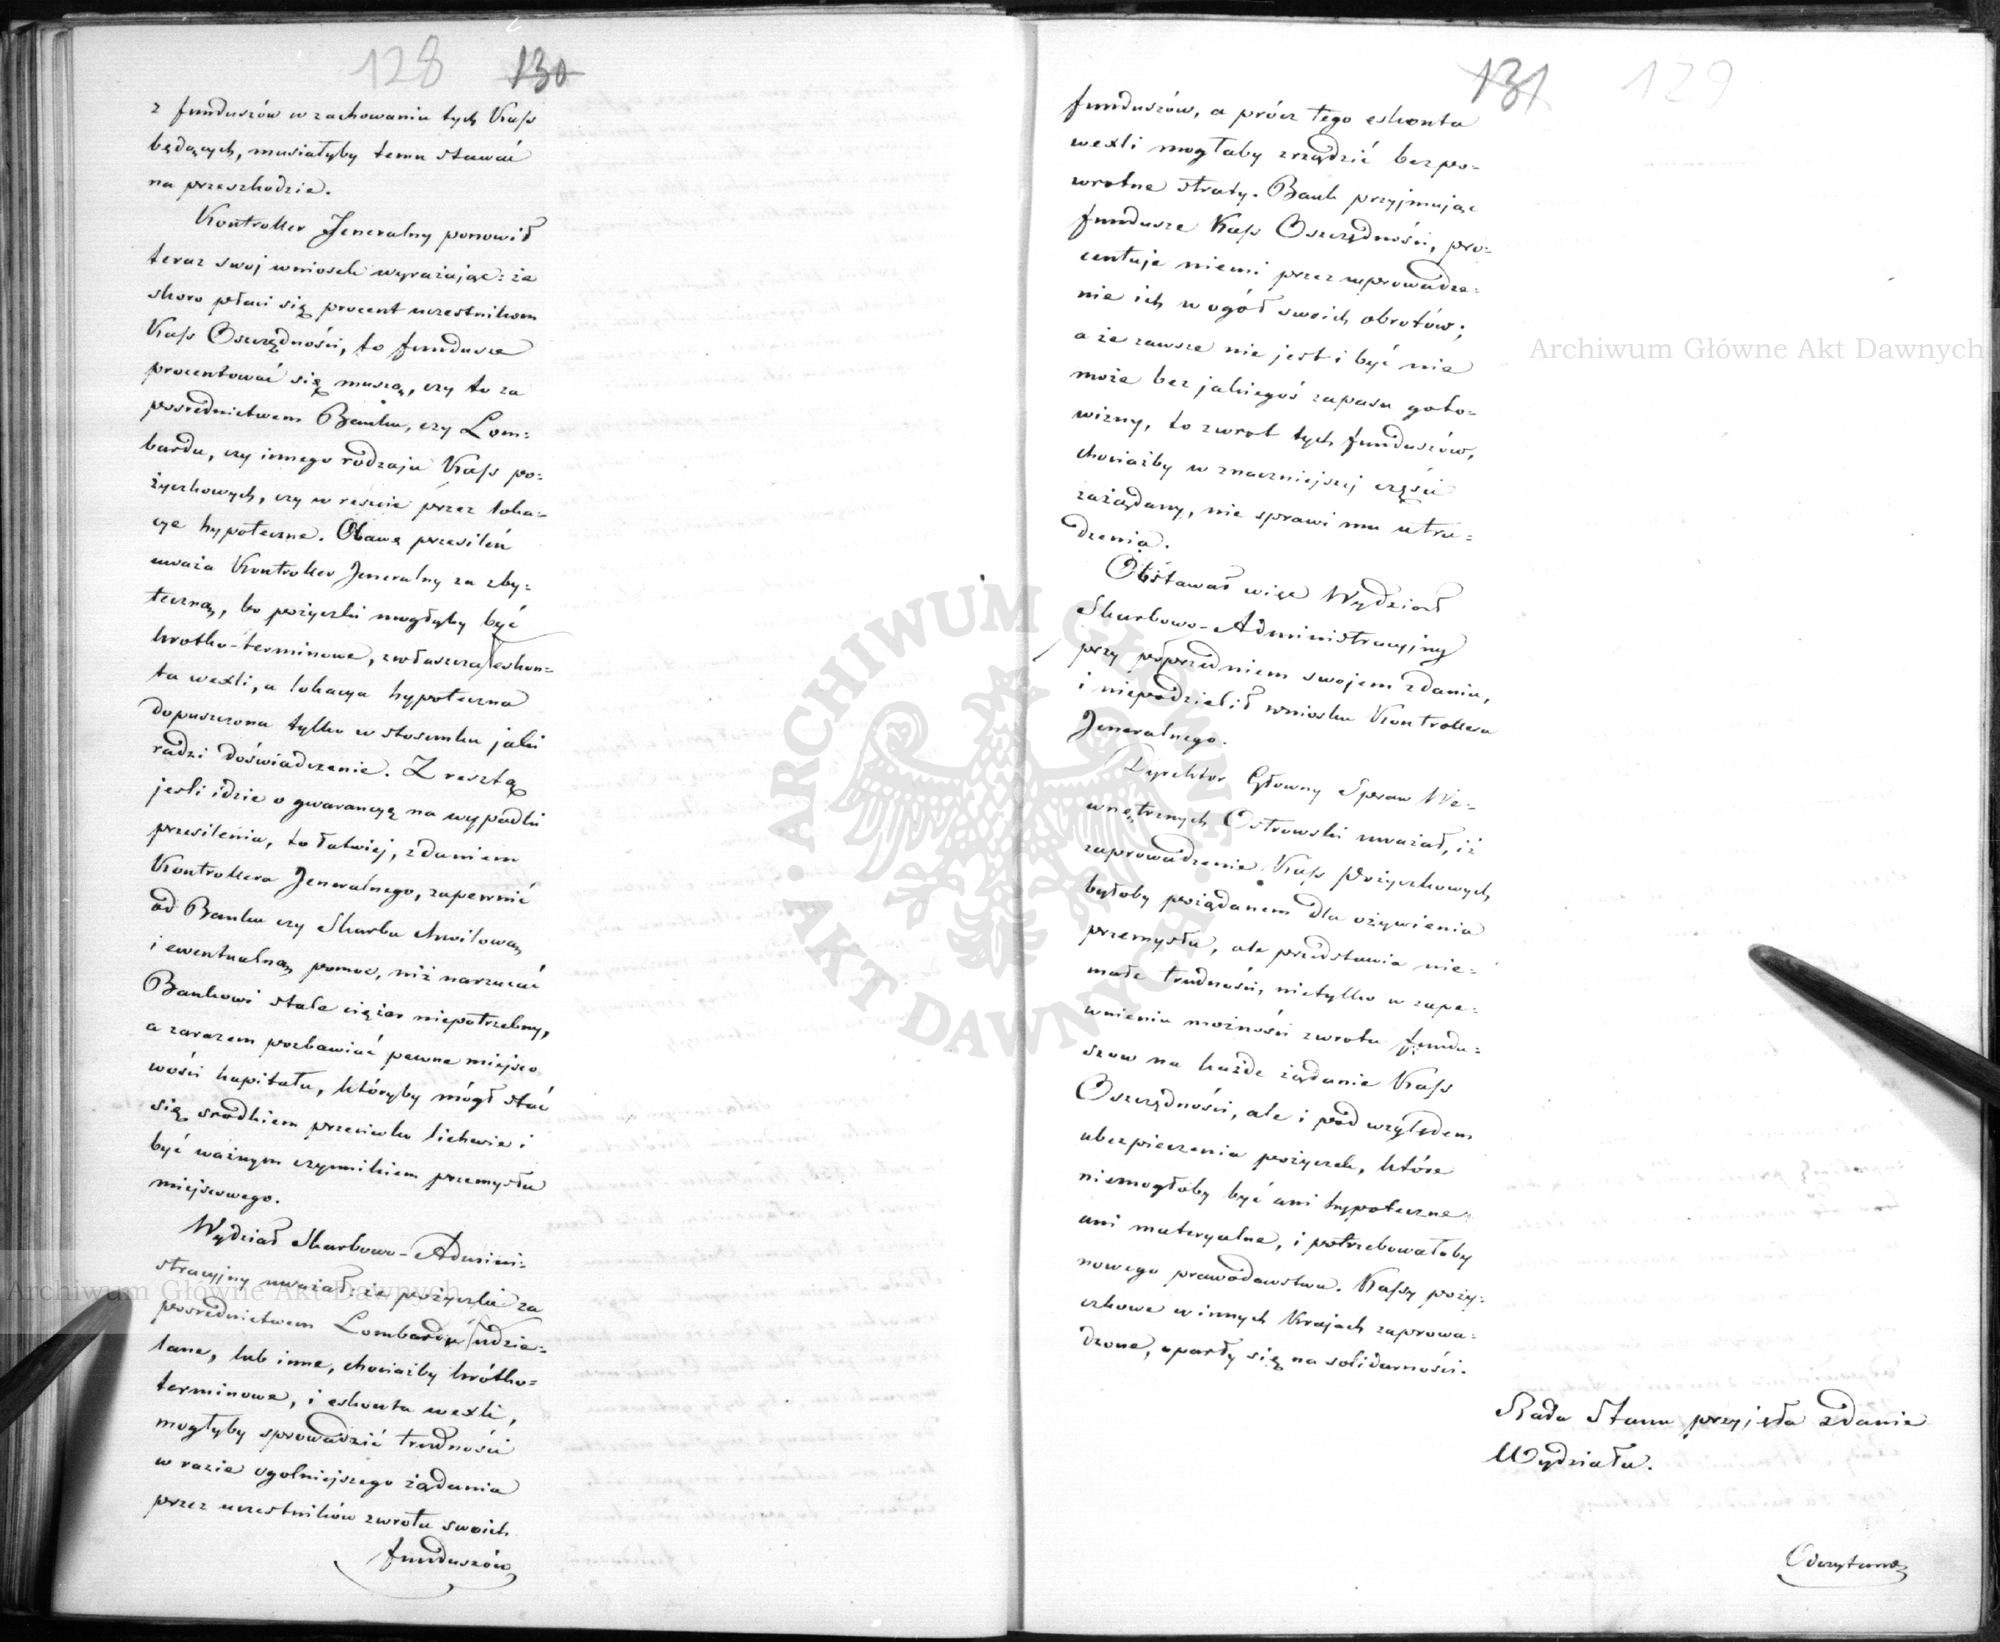 128 130
z funduszów w zachowaniu tych Kass
będących, musiałyby temu stawać
na przeszkodzie.
Kontroller Jeneralny ponowił
teraz swoj wniosek wyrażając: że
skoro płaci się procent uczestnikom
Kass Oszczędności, to fundusze
procentować się muszą, czy to za
posrednictwem Banku, czy Lom-
bardu, czy innego rodzaju Kass po-
życzkowych, czy w reście przez loka-
cye hypoteczne. Obawę przesileń
uważa Kontroller Jeneralny za zby-
teczną, bo pożyczki mogłyby być
krotko-terminowe, zwłaszcza eskon-
ta wexli, a lokacya hypoteczna
dopuszczona tylko w stosunku jaki
radzi doświadczenie. Z resztą
jesli idzie o gwarancyą na wypadki
przesilenia, to łatwiej, zdaniem
Kontrollera Jeneralnego, zapewnić
od Banku czy Skarbu chwilową
i ewentualną pomoc, niż narzucać
Bankowi stale ciężar niepotrzebny,
a zarazem pozbawiać pewne miejsco
wości kapitału, któryby mógł stać
się srodkiem przeciwko lichwie i
być ważnym czynnikiem przemysłu
miejscowego.
Wydział Skarbowo-Admini-
stracyjny uważał: że pożyczki za
posrednictwem Lombardu udzie-
lane, lub inne, chociażby krótko-
terminowe, i eskonta wexli,
mogłyby sprowadzić trudności
w razie ogolniejszego żądania
przez uczestników zwrotu swoich
funduszów
131 129
funduszów, a prócz tego eskonta
wexli mogłaby zrządzić bezpo-
wrotne straty. Bank przyjmując
fundusze Kass Oszczędności, pro-
centuje niemi przez wprowadze-
nie ich w ogół swoich obrotów;
a że zawsze nie jest i być nie
może bez jakiegoś zapasu goto-
wizny, to zwrot tych funduszów,
chociażby w znaczniejszej części
zażądany, nie sprawi mu utru-
dzenia.
Obstawał więc Wydział
Skarbowo-Administracyjny
przy poprzedniem swojem zdaniu,
i niepodzielił wniosku Kontrollera
Jeneralnego.
Dyrektor Główny Spraw We-
wnętrznych Ostrowski uważał, iż
zaprowadzenie Kass Pożyczkowych,
byłoby pożądanem dla ożywienia
przemysłu, ale przedstawia nie-
małe trudności, nietylko w zape-
wnieniu możności zwrotu fundu-
szow na każde żądanie Kass
Oszczędności, ale i pod względem
ubezpieczenia pożyczek, które
niemogłoby być ani hypoteczne
ani materyalne, i potrzebowałoby
nowego prawodawstwa. Kassy poży-
czkowe w innych Krajach zaprowa-
dzone, oparły się na solidarności.
Rada Stanu przyjęła zdanie
Wydziału.
Odczytano
Archiwum Główne Akt Dawnych
Archiwum Główne Akt Dawnych
ARCHIWUM GŁÓWNE AKT DAWNYCH